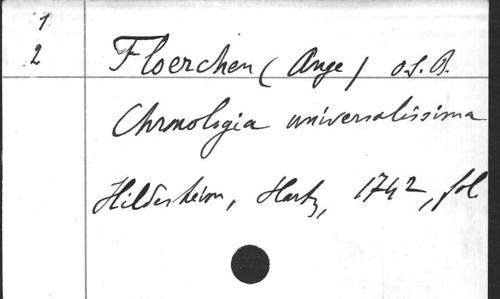 1
2
Floerchen (Ange) o.s.B.
Chronologia universalissima
Hildesheim, Hartz, 1742, fol